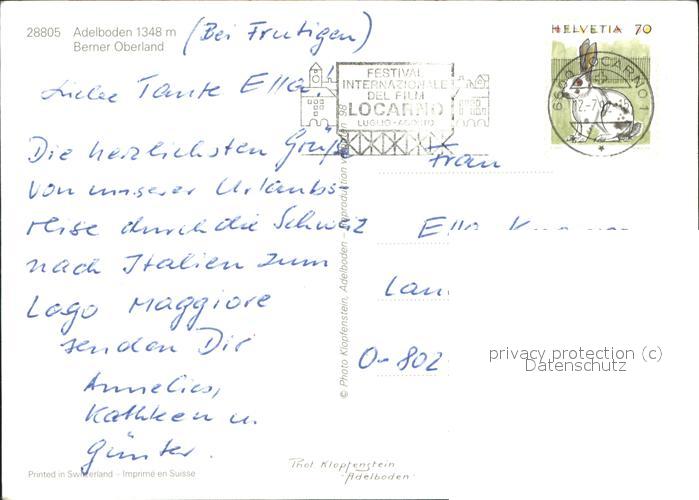 28805 Adelboden 1348 m
Berner Oberland
(Bei Frutigen)
Liebe Tante Ella!
Die herzlichsten Grüße
von unserer Urlaubs-
reise durch die Schweiz
nach Italien zum
Lago Maggiore
senden Dir
Annelies,
Kathleen u.
Günter.
Printed in Switzerland – Imprimé en Suisse
© Photo Klopfenstein, Adelboden
FESTIVAL
INTERNAZIONALE
DEL FILM
LOCARNO
LUGLIO-AGOSTO
HELVETIA 70
6600 LOCARNO 1
Frau
Ella
O-802
privacy protection (c)
Datenschutz
Phot Klopfenstein
Adelboden